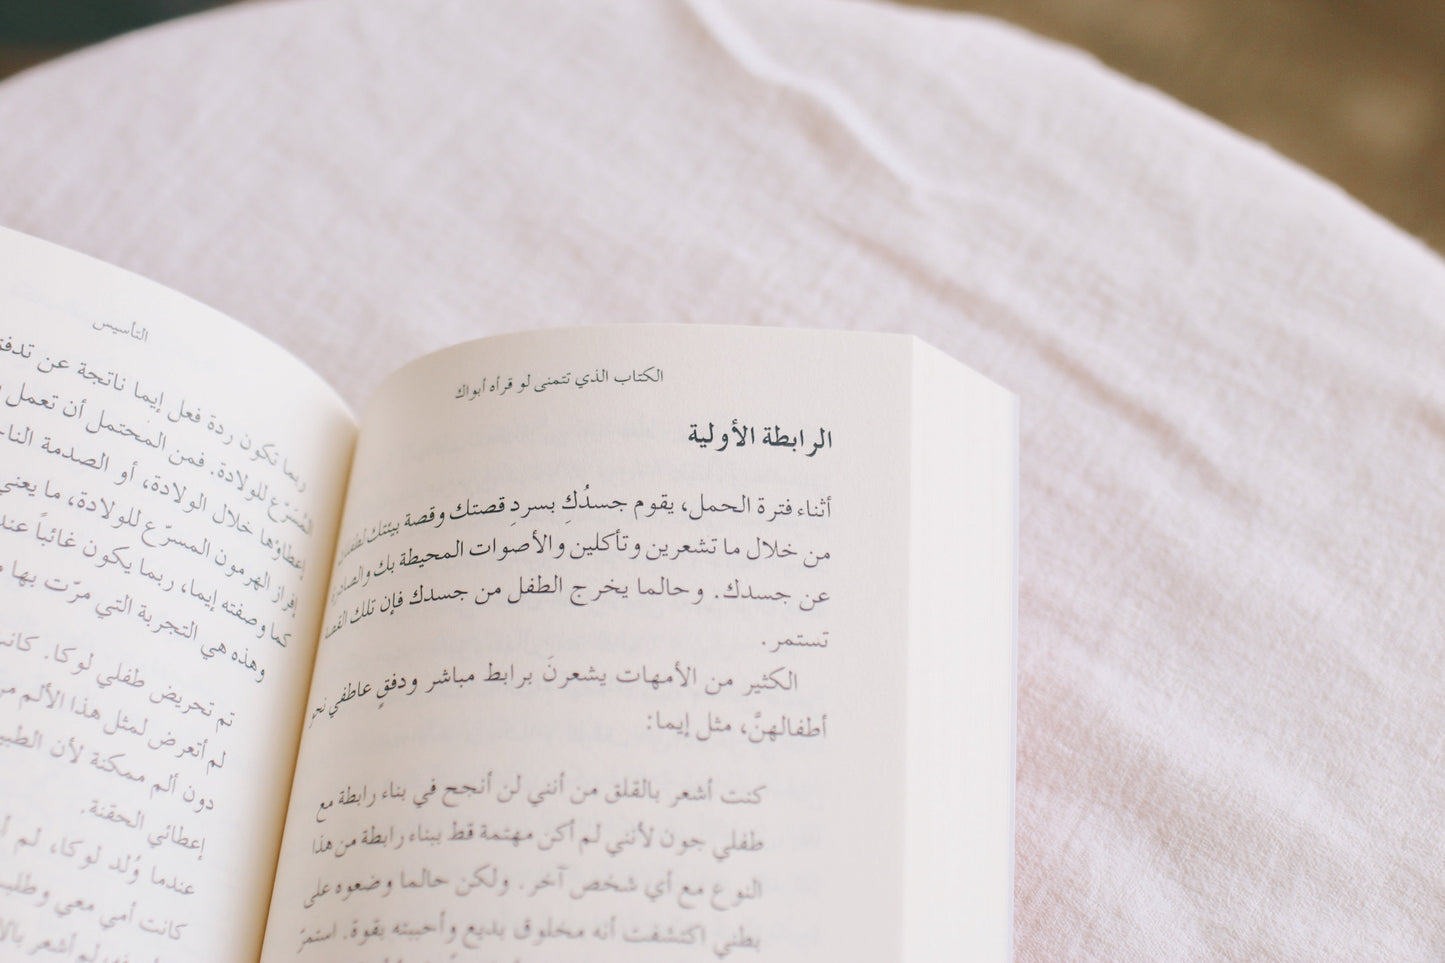 الكتاب الذي تتمنى لو قرأه أبواك
الرابطة الأولية
أثناء فترة الحمل، يقوم جسدُكِ بسردِ قصتك وقصة بيئتك لطفلك
من خلال ما تشعرين وتأكلين والأصوات المحيطة بك والصادرة
عن جسدك. وحالما يخرج الطفل من جسدك فإن تلك القصة
تستمر.
الكثير من الأمهات يشعرنَ برابط مباشر ودفقٍ عاطفي نحو
أطفالهنَّ، مثل إيما:
كنت أشعر بالقلق من أنني لن أنجح في بناء رابطة مع
طفلي جون لأنني لم أكن مهتمة قط ببناء رابطة من هذا
النوع مع أي شخص آخر. ولكن حالما وضعوه على
بطني اكتشفت أنه مخلوق بديع وأحببته بقوة. استمرّ
التأسيس
ربما تكون ردة فعل إيما ناتجة عن
المُسَرّع للولادة. فمن المحتمل أن تعمل
إعطاؤها خلال الولادة، أو الصدمة
إفراز الهرمون المسرّع للولادة، ما يعني
كما وصفته إيما، ربما يكون غائباً
وهذه هي التجربة التي مرّت بها
تم تحريض طفلي لوكا.
لم أتعرض لمثل هذا الألم
دون ألم ممكنة لأن
إعطائي الحقنة.
عندما وُلد لوكا، لم
كانت أمي معي
لم أشعر